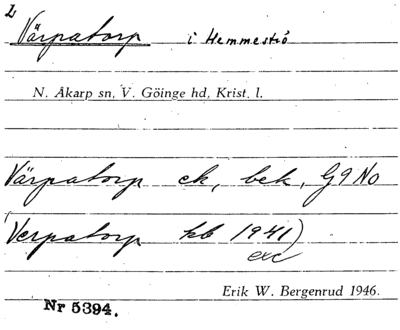 L
Värpatorp i Hemmeströ
N. Åkarp sn, V. Göinge hd, Krist. l.
Värpatorp ek, bek, G9 No
Verpatorp kb 1941)
exc
Erik W. Bergenrud 1946.
Nr 5394.